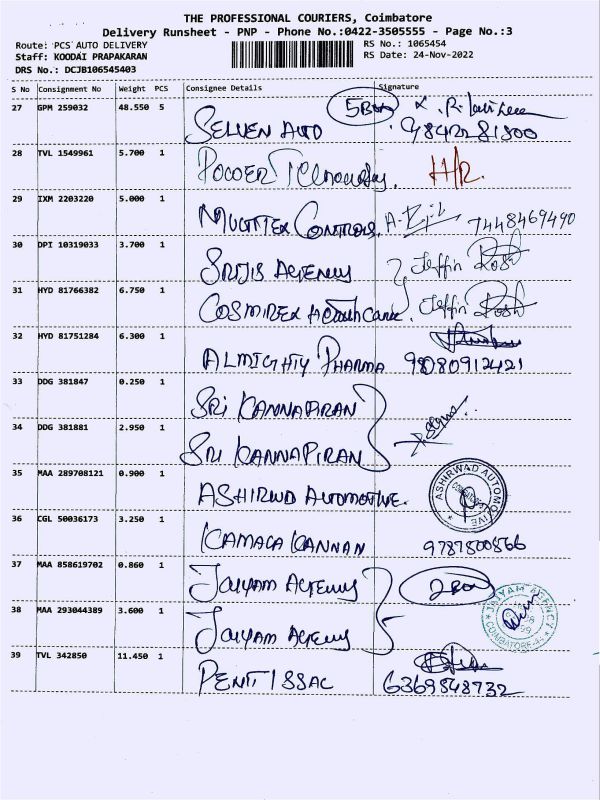 THE PROFESSIONAL COURIERS, Coimbatore
Delivery Runsheet - PNP - Phone No.:0422-3505555 - Page No.:3
Route: PCS AUTO DELIVERY RS No.: 1065454
Staff: KOODAI PRAPAKARAN RS Date: 24-Nov-2022
DRS No.: DCJB106545403
S No Consignment No Weight PCS Consignee Details Signature
27 GPM 259032 48.550 5 5Box
SELVEN AUTO 9842281800
28 TVL 1549961 5.700 1
POOOER TECHNOLOGY. H/R.
29 IXM 2203220 5.000 1
MULTITEX CONTROLS. 7448469490
30 DPI 10319033 3.700 1
SRIJIS AGENCY Jeffin Rosh
31 HYD 81766382 6.750 1
COSMIREX HEALTHCARE. Jeffin Rosh
32 HYD 81751284 6.300 1
ALMIGHTY PHARMA 9080912421
33 DDG 381847 0.250 1
SRI KANNAPIRAN
34 DDG 381881 2.950 1
SRI KANNAPIRAN
35 MAA 289708121 0.900 1
ASHIRWD AUTOMOTIVE. ASHIRWAD AUTOMOTIVE
36 CGL 50036173 3.250 1
KAMAGA KANNAN 9787800566
37 MAA 858619702 0.860 1
JAIYAM AGENCY 2Box
38 MAA 293044389 3.600 1
JAIYAM AGENCY JAIYAM AGENCY COIMBATORE
39 TVL 342850 11.450 1
PENTISSAC 6369848732